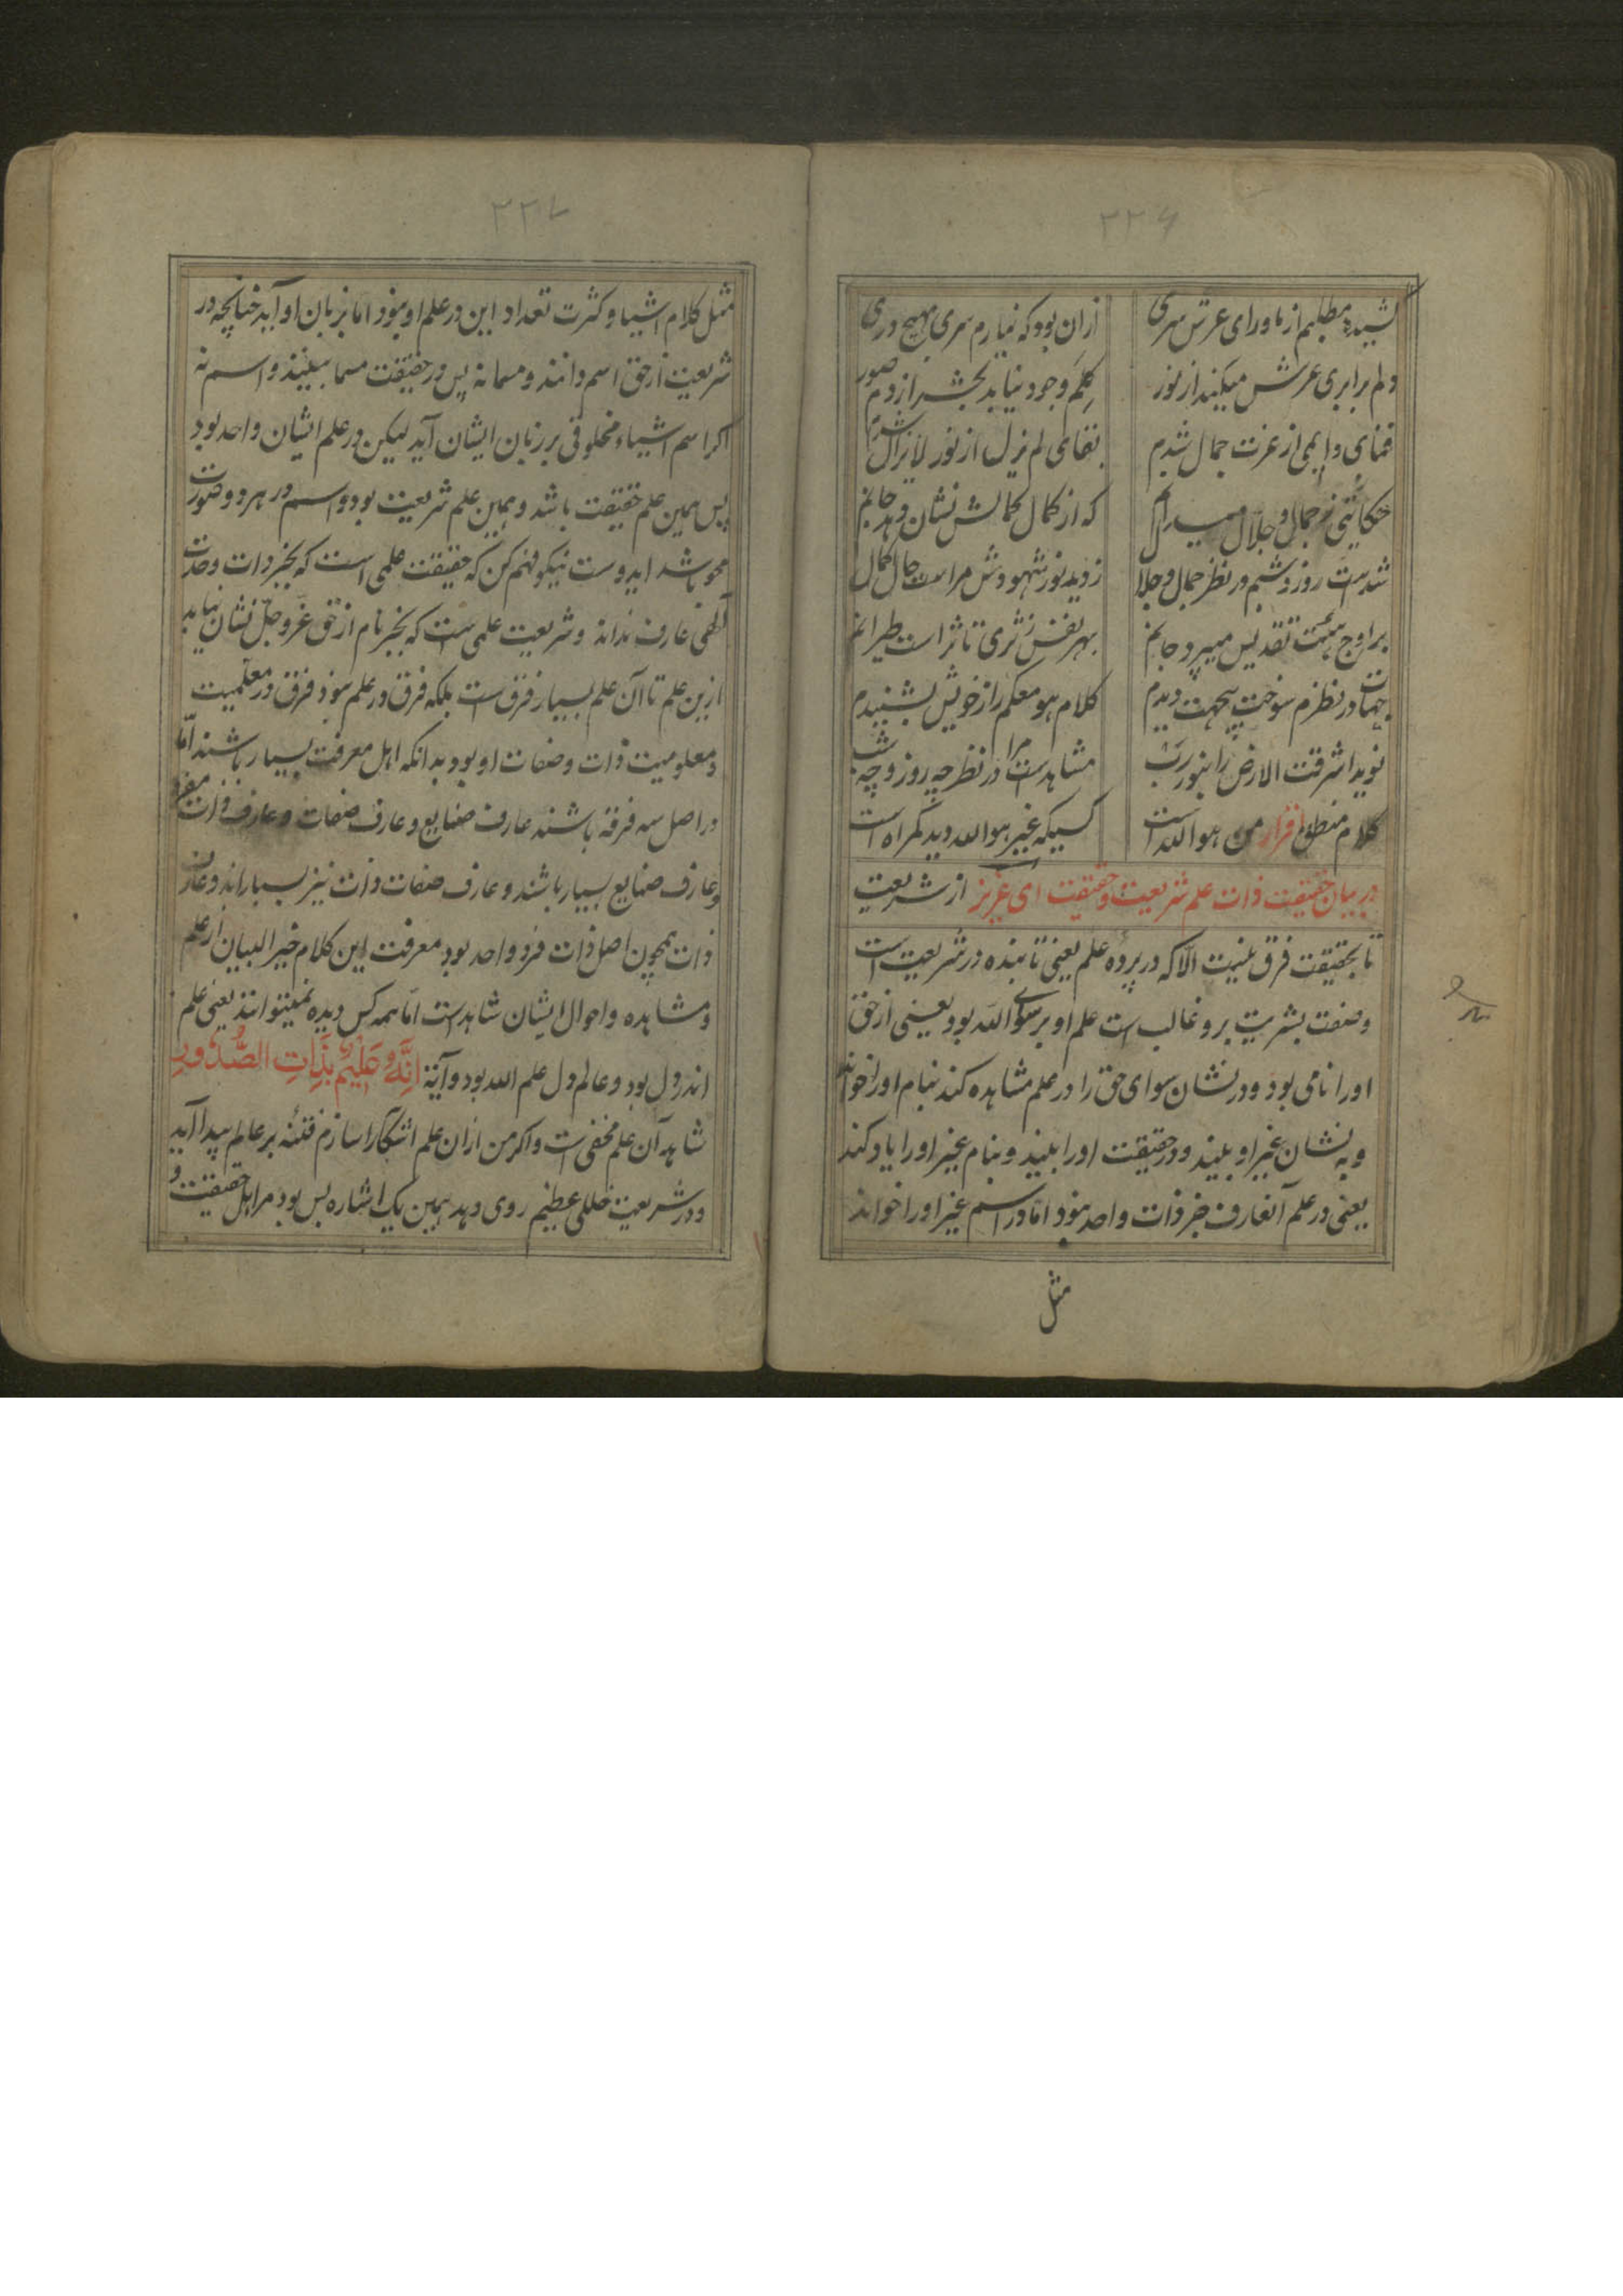 ۲۲۶
کشیده مطلبم از ماورای عرش سری
ازان بود که نیارم سری بهیچ دری
دلم برابری عرش میکند از نور
کلیم وجود نیابد بجشر از دم صور
فنای دایمی از عزت جمال شدم
بقای لم یزل از نور لایزال شدم
حکایتی ز جمال و جلال میدانم
که از کمال کمالش نشان دهد جانم
شدست روز و شبم در نظر جمال و جلال
ز دید نور شهودش مراست حال کمال
بر اوج هیئت تقدیس میپرد جانم
بهر نفس ز ثری تا ثراست طیرانم
جهات در نظرم سوخت بیجهت دیدم
کلام هو معکم را ز خویش بشنیدم
نوید اشرقت الارض را بنور رب
مشاهدست مرا در نظر چه روز و چه شب
کلام منطق اقرار من هو الله است
کسیکه غیر هو الله دید گمراه است
در بیان حقیقت ذات علم شریعت و حقیقت ای عزیز از شریعت
تا بحقیقت فرق نیست الّا که در پرده علم یعنی تا بنده در شریعت است
و صفت بشریت برو غالب است علم او بر سوی الله بود یعنی از حق
او را نامی بود و در نشان سوای حق را در علم مشاهده کند بنام او را خواند
و به نشان غیر او بیند و در حقیقت او را بیند و بنام غیر او را یاد کند
یعنی در علم آنعارف جز ذات واحد نبود اما در اسم غیر او را خواند
مثل
۲۲۷
مثل کلام اشیا و کثرت تعداد این در علم او نبود اما بزبان او آید چنانچه در
شریعت از حق اسم دانند و مسما نه پس در حقیقت مسما بینند و اسم نه
اکر اسم اشیاء مخلوقی بر زبان ایشان آید لیکن در علم ایشان واحد بود
پس همین علم حقیقت باشد و همین علم شریعت بود و اسم در هر دو صورت
محو باشد ایدوست نیکو فهم کن که حقیقت علمی است که بجز ذات وحدت
الهی عارف نداند و شریعت علمی ست که بجز نام از حق عز و جل نشان نیابد
ازین علم تا آن علم بسیار فرق است بلکه فرق در علم نبود فرق در معلمیت
و معلومیت ذات و صفات او بود بدانکه اهل معرفت بسیار باشند امّا
در اصل سه فرقه باشند عارف صنایع و عارف صفات و عارف ذات مفرد
و عارف صنایع بسیار باشند و عارف صفات ذات نیز بسیاراند و عارف
ذات همچون اصل ذات فرد واحد بود معرفت این کلام خیر البیان از علم
و مشاهده و احوال ایشان شاهدست امّا همه کس دیده نمیتوانند یعنی علم
اندر دل بود و عالم دل علم الله بود و آیة اِنَّهُ عَلِیْمٌ بِذَاتِ الصُّدُورِ
شاهد آن علم مخفی است و اکر من ازان علم آشکارا سازم فتنه بر عالم پیدا آید
و در شریعت خللی عظیم روی دهد همین یک اشاره بس بود مر اهل حقیقت و